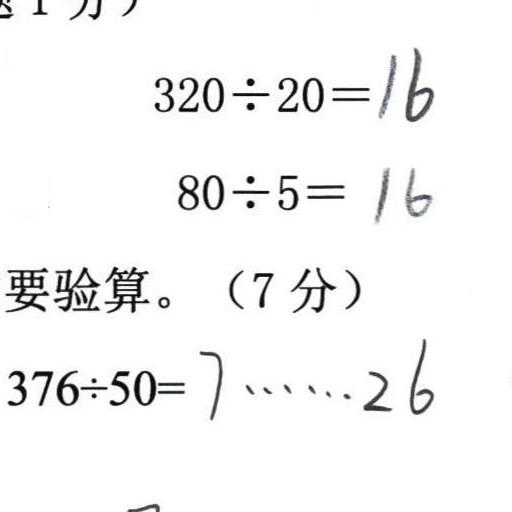 1 分）
320÷20=16
80÷5= 16
要验算。（7 分）
376÷50= 7……26